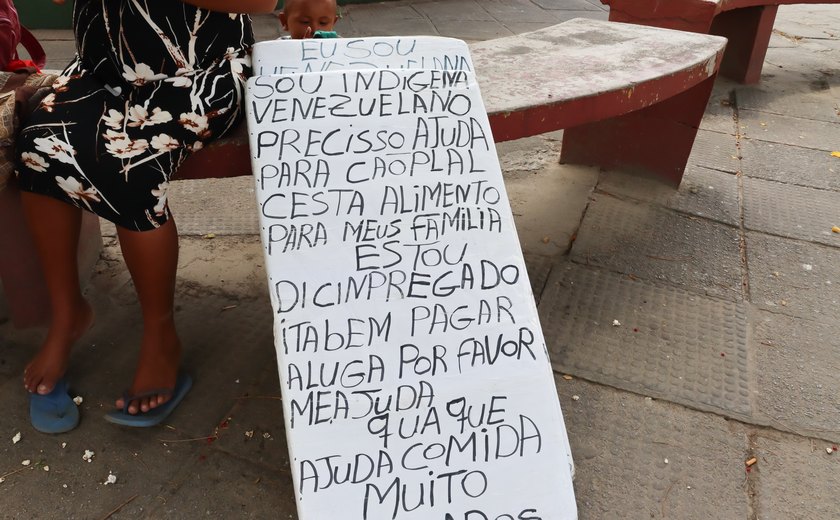 EU SOU
VENEZUELANO
SOU INDIGENA
VENEZUELANO
PRECISSO AJUDA
PARA CAOPLAL
CESTA ALIMENTO
PARA MEUS FAMILIA
ESTOU
DICIMPREGADO
ITABEM PAGAR
ALUGA POR FAVOR
MEAJUDA
QUA QUE
AJUDA COMIDA
MUITO